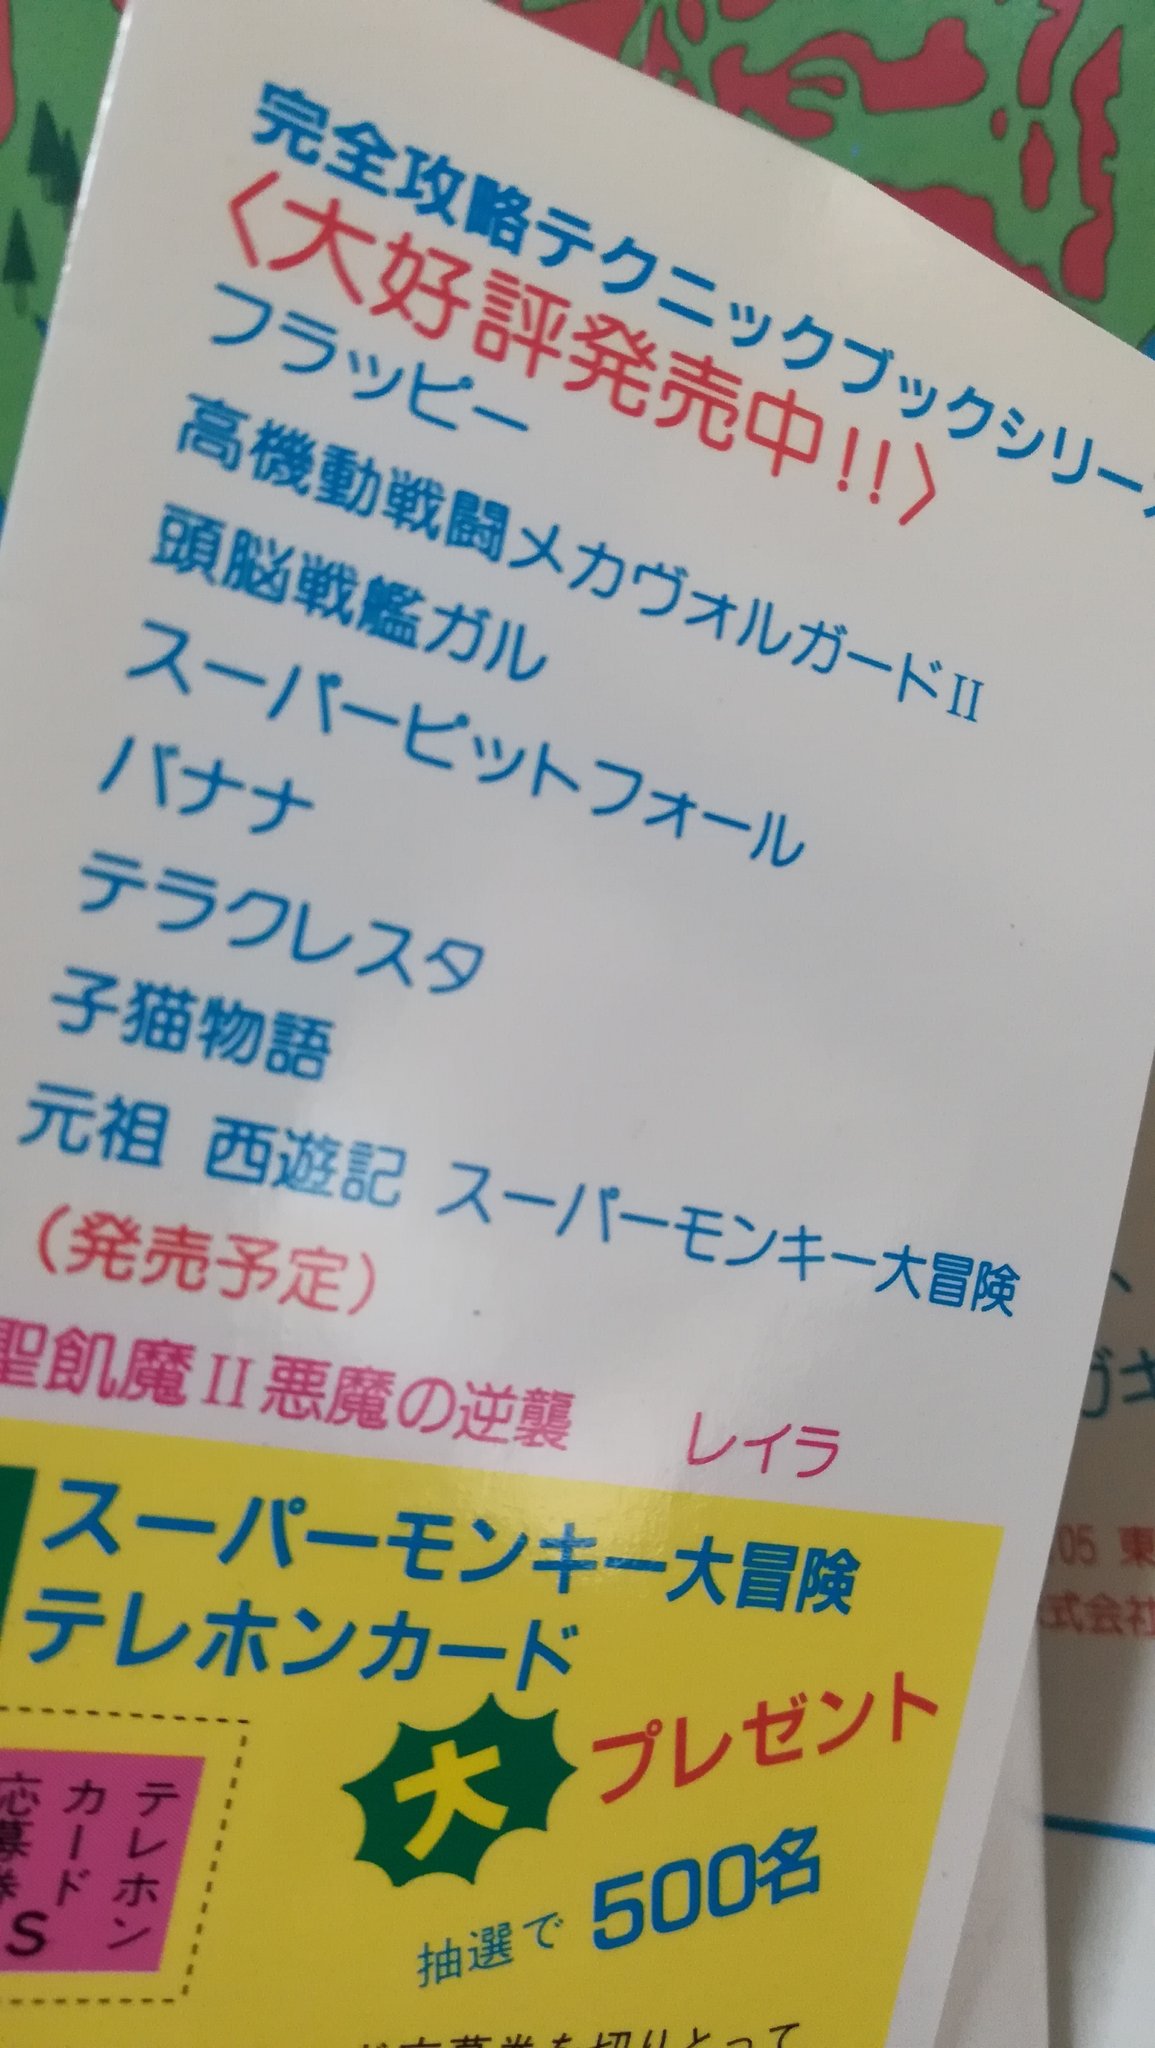 完全攻略テクニックブックシリー
〈大好評発売中!!〉
フラッピー
高機動戦闘メカヴォルガードII
頭脳戦艦ガル
スーパーピットフォール
バナナ
テラクレスタ
子猫物語
元祖 西遊記 スーパーモンキー大冒険
（発売予定）
聖飢魔II悪魔の逆襲 レイラ
スーパーモンキー大冒険
テレホンカード
大プレゼント
抽選で500名
テレホン
カード
応募券
S
応募券を切りとって
05 東
式会社